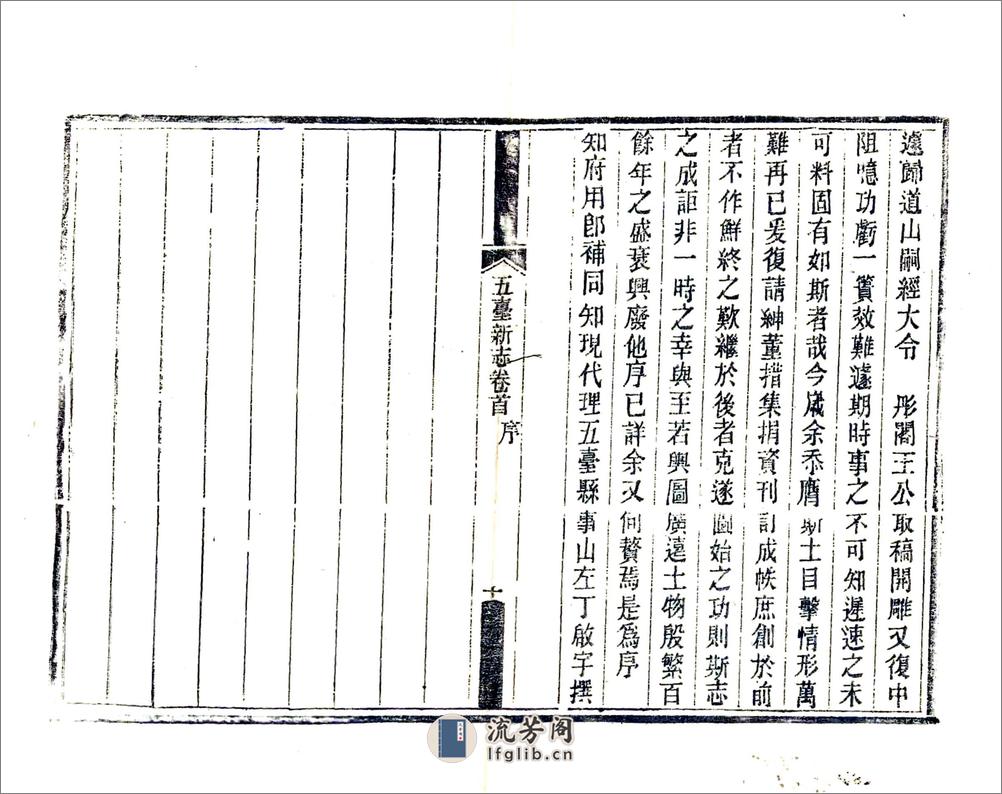 遽歸道山嗣經大令　彤閣王公取稿開雕又復中
阻噫功虧一簣效難遽期時事之不可知遲速之未
可料固有如斯者哉今歲余忝膺斯土目擊情形萬
難再已爰復請紳董措集捐資刊訂成帙庶創於前
者不作鮮終之歎繼於後者克遂圖始之功則斯志
之成詎非一時之幸與至若輿圖廣遠土物殷繁百
餘年之盛衰興廢他序已詳余又何贅焉是爲序
知府用卽補同知現代理五臺縣事山左丁啟宇撰
五臺新志卷首　序
十
流芳阁
lfglib.cn